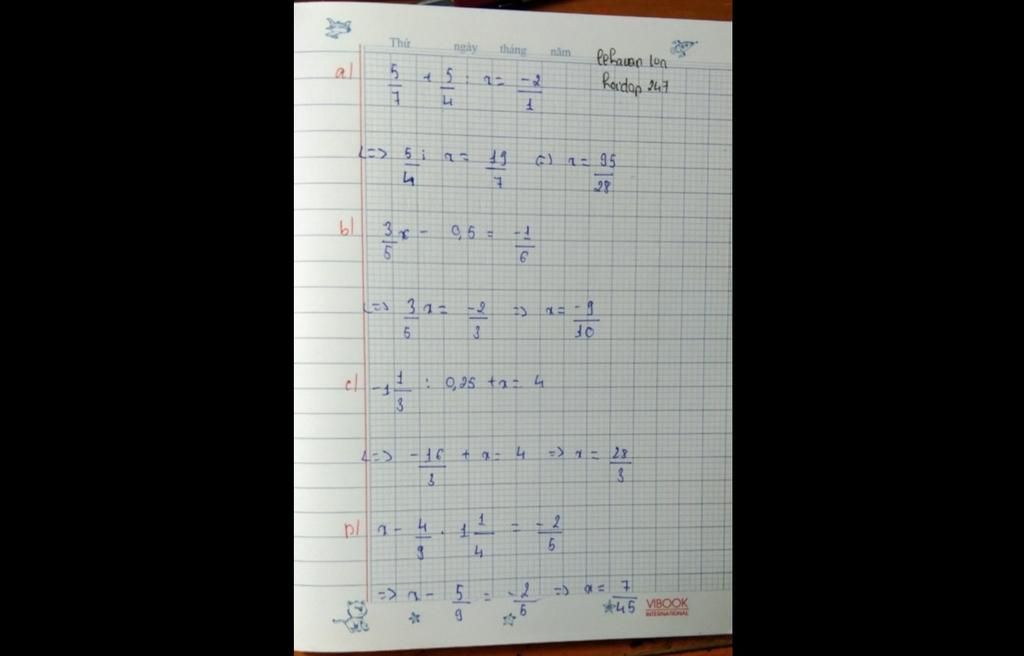 Thứ ngày tháng năm
hoidap 247
a) 5/7 + 5/4 : x = -2/1
<=> 5/4 : x = 19/7 => x = 95/28
b) 3/5 x - 0,5 = -1/6
<=> 3/5 x = -2/3 => x = -9/10
c) -1 1/3 : 0,25 + x = 4
<=> -16/3 + x = 4 => x = 28/3
D) x - 4/9 . 1 1/4 = -2/5
=> x - 5/9 = -2/5 => x = 7/45
VIBOOK
INTERNATIONAL